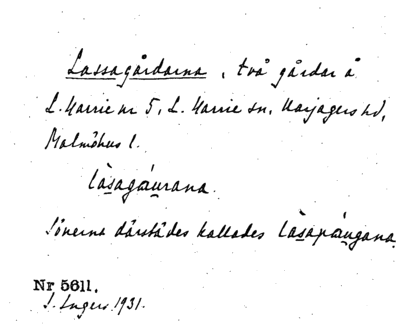 Lassagårdarna, två gårdar å
L. Harrie nr 5, L. Harrie sn, Harjagers hd,
Malmöhus l.
làsagáurana.
Sönerna därstädes kallades làsapáugana.
Nr 5611.
I. Ingers 1931.